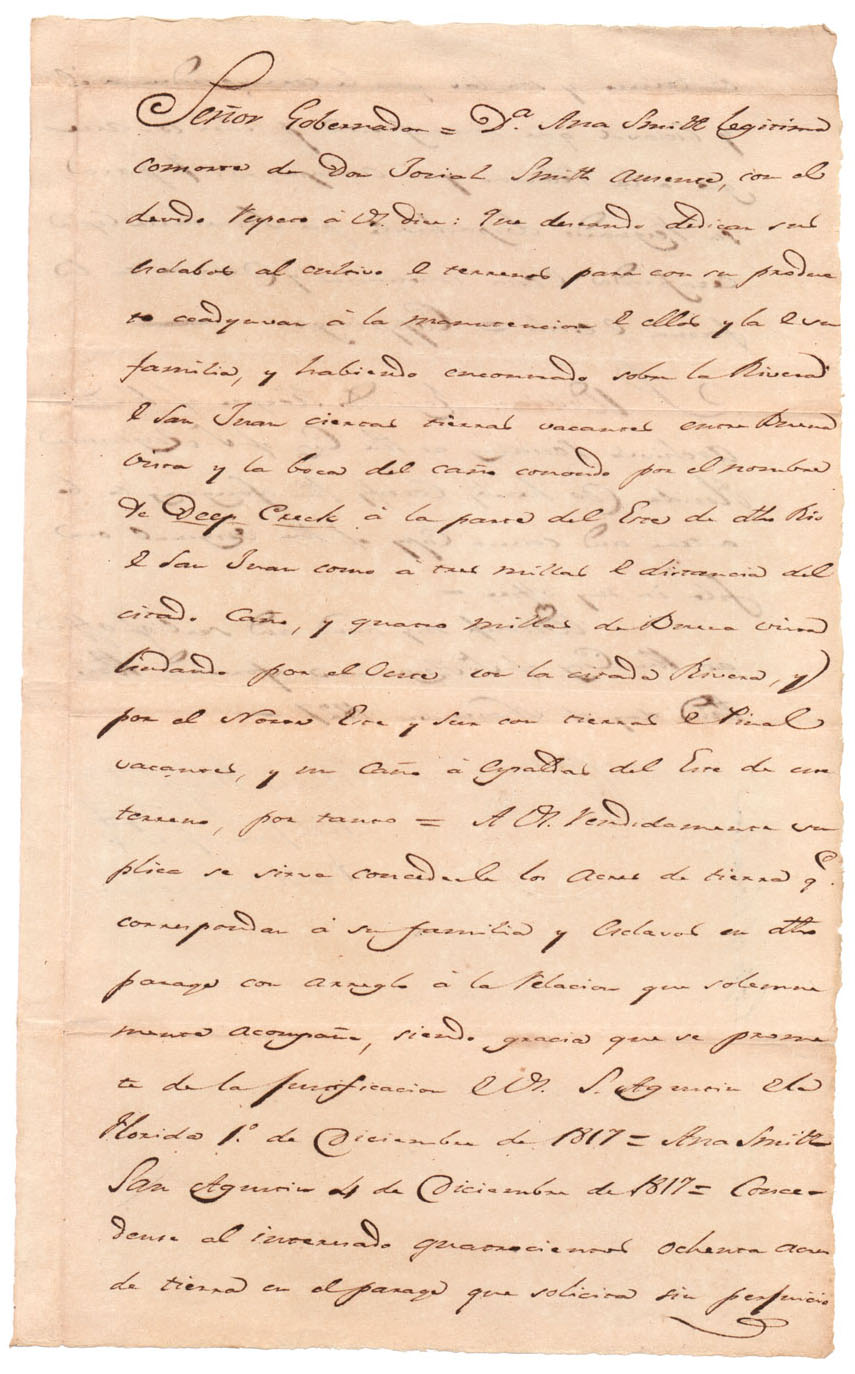 Señor Gobernador = Dª. Ana Smith legitima
consorte de Don Josiah Smith ausente, con el
devido respeto á V.S. dice: Que deseando dedicar sus
esclabos al cultivo de terrenos para con su produc
to coadyuvar á la manutencion de ellos y la de su
familia, y habiendo encontrado sobre la Rivera
de San Juan ciertas tierras vacantes entre Buena
vista y la boca del caño conosido por el nombre
de Deep Creek á la parte del Este de dho Rio
de San Juan como á tres millas de distancia del
citado Caño, y quatro millas de Buena vista
lindando por el Oeste con la citada Rivera, y
por el Norte Este y Sur con tierras de Pinal
vacantes, y un Caño á Espaldas del Este de este
terreno, por tanto = A V.S. rendidamente su
plica se sirva concederle los acres de tierra qe.
correspondan á su familia y Esclavos en dho
parage con arreglo á la relacion que solemne
mente acompaña, siendo gracia que se prome
te de la justificacion de V.S. Sn. Agustin de la
Florida 1º. de Diciembre de 1817 = Ana Smith
San Agustin 4 de Diciembre de 1817 = Conce-
dense al interesado quatrocientos ochenta acres
de tierra en el parage que solicita sin perjuicio